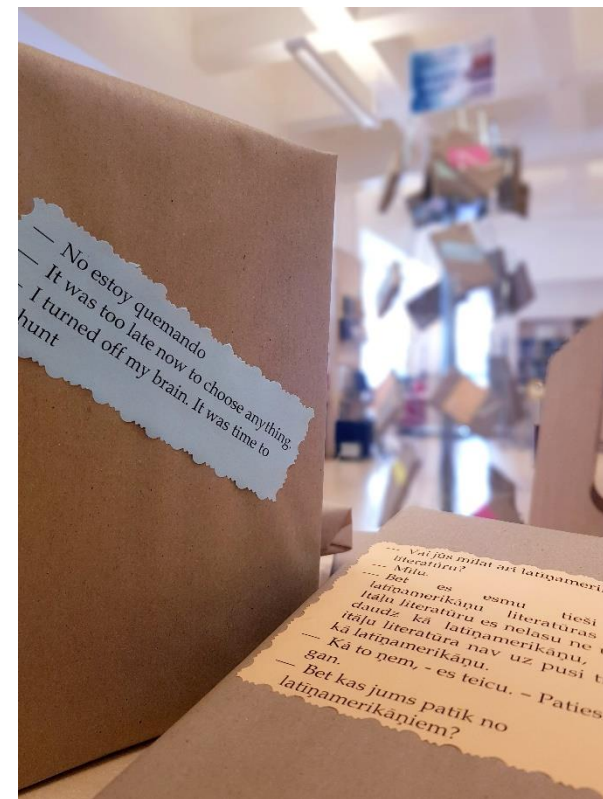 — No estoy quemando
— It was too late now to choose anything.
- I turned off my brain. It was time to
hunt
--- Vai jūs mīlat arī latīņamerik
literatūru?
--- Mīlu.
---- Bet es esmu tieši
latīņamerikāņu literatūras
Itāļu literatūru es nelasu ne
daudz kā latīņamerikāņu,
itāļu literatūra nav uz pusi
kā latīņamerikāņu.
— Kā to ņem, - es teicu. – Paties
gan.
— Bet kas jums patīk no
latīņamerikāņiem?